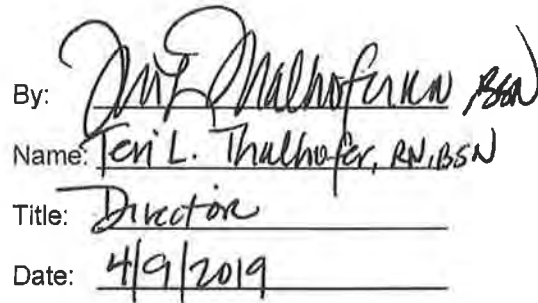 By: Teri L Thalhofer RN BSN
Name: Teri L. Thalhofer, RN, BSN
Title: Director
Date: 4/9/2019